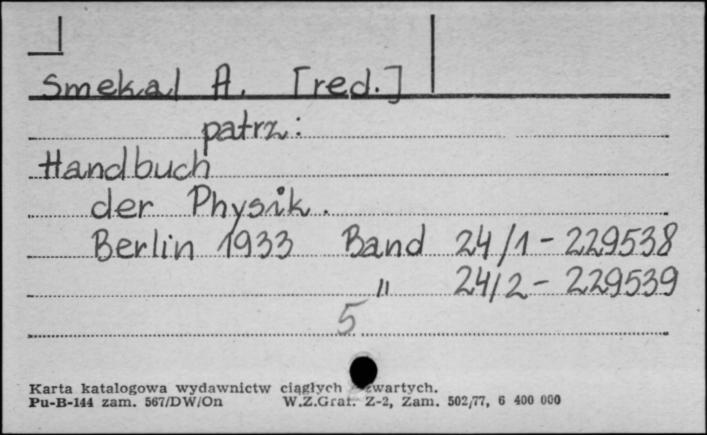 Smekal A. [red.]
patrz:
Handbuch
der Physik.
Berlin 1933 Band 24/1 - 229538
" 24/2 - 229539
5
Karta katalogowa wydawnictw ciągłych zwartych.
Pu-B-144 zam. 567/DW/On W.Z.Graf. Z-2, Zam. 502/77, 6 400 000